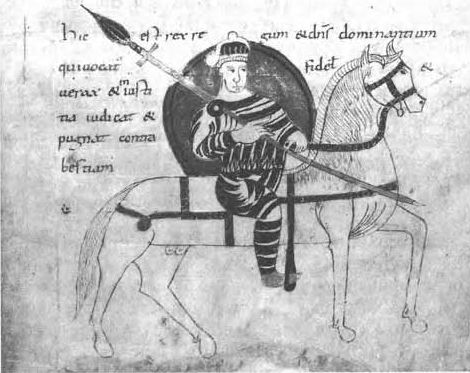 hic est rex re gum & dn̄s dominantium
qui uocat̄ fidel̄ &
uerax & in iusti
tia iudicat &
pugnat contra
bestiam